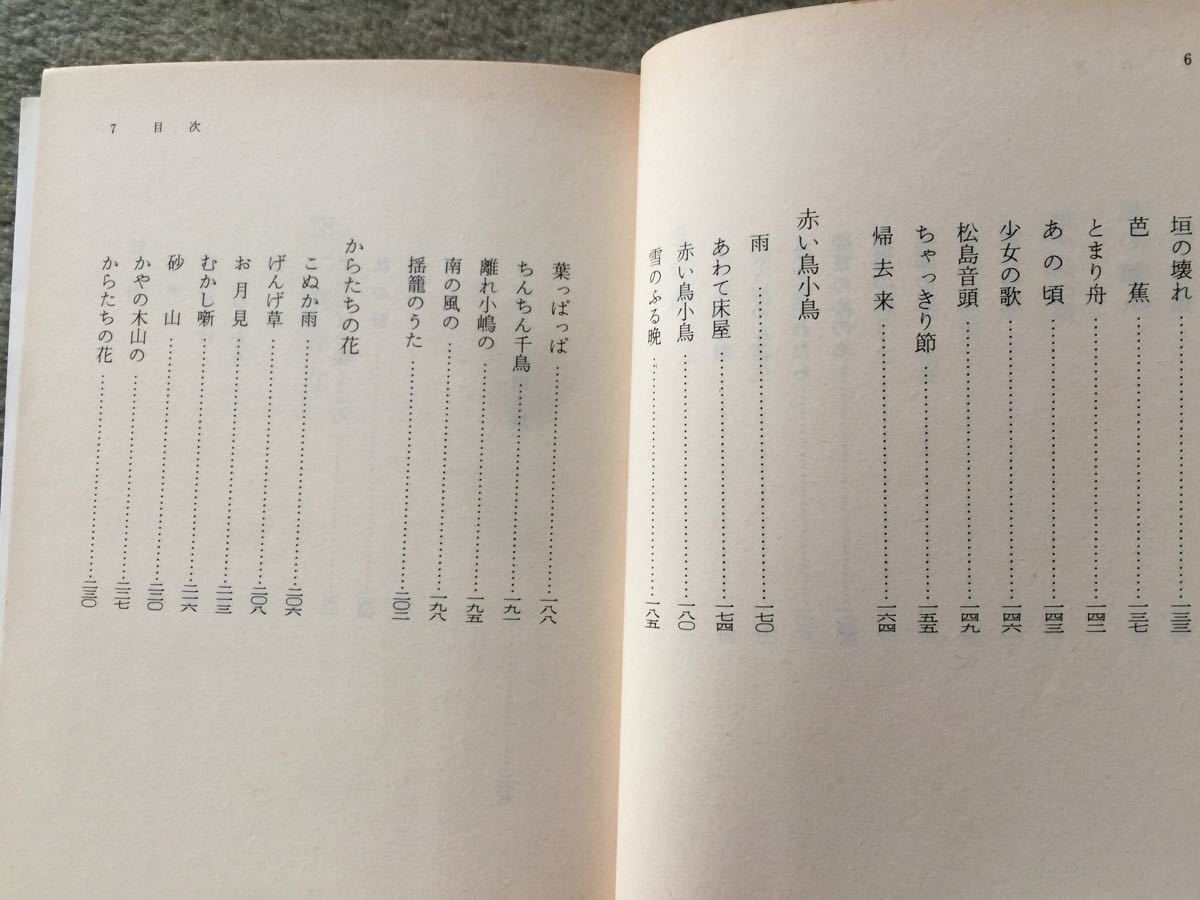 6
垣の壊れ……一三三
芭蕉……一三七
とまり舟……一四二
あの頃……一四三
少女の歌……一四六
松島音頭……一四九
ちゃっきり節……一五五
帰去来……一六四
赤い鳥小鳥
雨……一七〇
あわて床屋……一七四
赤い鳥小鳥……一八〇
雪のふる晩……一八五
7 目次
葉っぱっぱ……一八八
ちんちん千鳥……一九一
離れ小嶋の……一九五
南の風の……一九八
揺籠のうた……二〇二
からたちの花
こぬか雨……二〇六
げんげ草……二〇八
お月見……二一三
むかし噺……二一六
砂山……二二〇
かやの木山の……二二七
からたちの花……二三〇